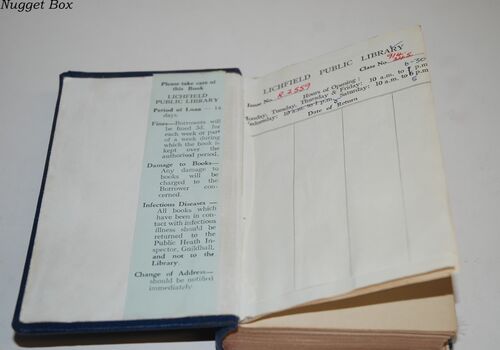 Nugget Box
Please take care of
this Book
LICHFIELD
PUBLIC LIBRARY
Period of Loan — 14
days.
Fines—Borrowers will
be fined 3d. for
each week or part
of a week during
which the book is
kept over the
authorised period.
Damage to Books—
Any damage to
books will be
charged to the
Borrower con-
cerned.
Infectious Diseases —
All books which
have been in con-
tact with infectious
illness should be
returned to the
Public Heath In-
spector, Guildhall,
and not to the
Library.
Change of Address—
should be notified
immediately
LICHFIELD PUBLIC LIBRARY
Issue No. R 2559 Class No. 914.245
Hours of Opening:
Monday, Tuesday, Thursday & Friday: 10 a.m. to p.m
Wednesday: 10 a.m. to 1 p.m. Saturday: 10 a.m. to 5 p.m
Date of Return